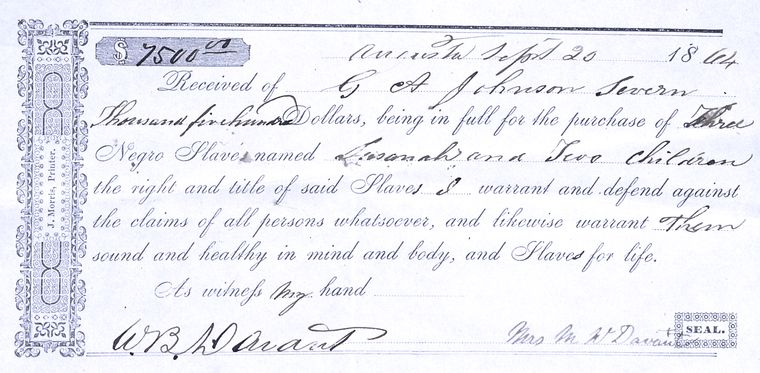 $ 7500 00
Augusta Sept 20 1864
Received of G A Johnson Seven
Thousand five hundred Dollars, being in full for the purchase of Three
Negro Slaves named and Two Children
the right and title of said Slaves I warrant and defend against
the claims of all persons whatsoever, and likewise warrant Them
sound and healthy in mind and body, and Slaves for life.
As witness my hand
W. B. Davant Mrs M W Davant SEAL.
J. Morris, Printer.